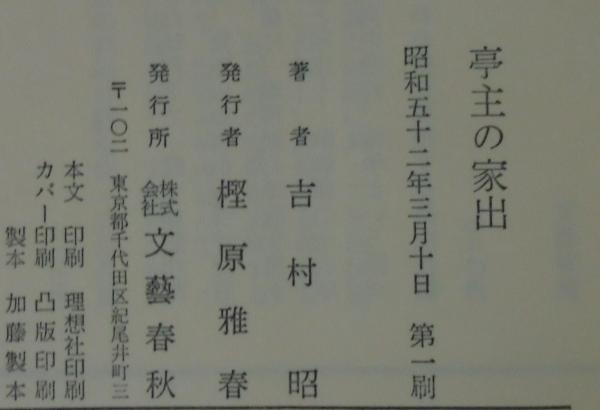 亭主の家出
昭和五十二年三月十日 第一刷
著者 吉村昭
発行者 樫原雅春
発行所 株式会社 文藝春秋
〒一〇二 東京都千代田区紀尾井町三
本文印刷 理想社印刷
カバー印刷 凸版印刷
製本 加藤製本